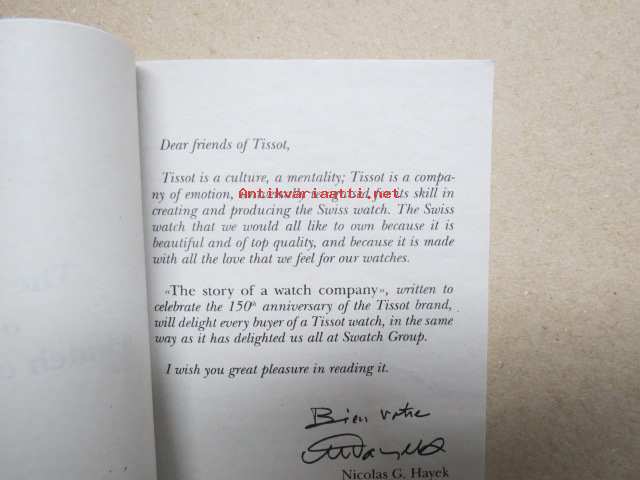 Dear friends of Tissot,
Tissot is a culture, a mentality; Tissot is a compa-
ny of emotion, for its skill in
Antikvariaatti.net
creating and producing the Swiss watch. The Swiss
watch that we would all like to own because it is
beautiful and of top quality, and because it is made
with all the love that we feel for our watches.
«The story of a watch company», written to
celebrate the 150th anniversary of the Tissot brand,
will delight every buyer of a Tissot watch, in the same
way as it has delighted us all at Swatch Group.
I wish you great pleasure in reading it.
Bien votre
Nicolas G. Hayek